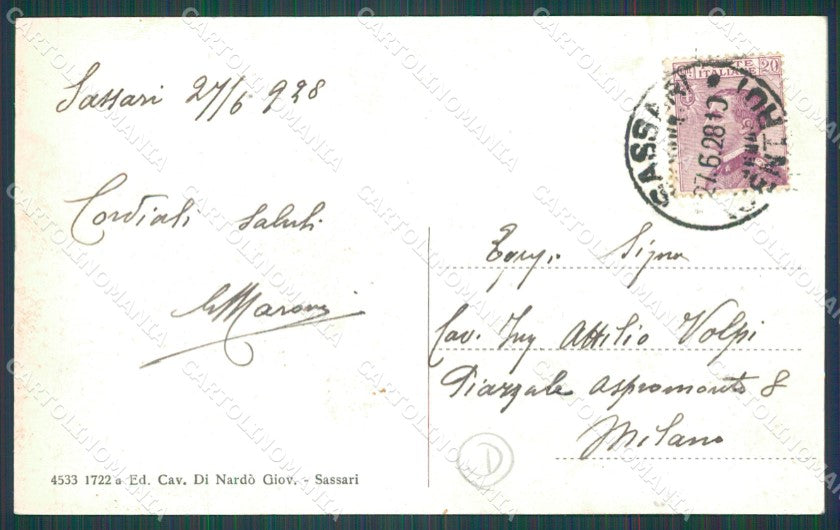 Sassari 27/6 928
Cordiali saluti
4533 1722 a Ed. Cav. Di Nardò Giov. - Sassari
POSTE
ITALIANE
20
SASSARI
27.6.28
Egreg. Signor
Cav. Ing Attilio Volpi
Piazzale Aspromonte 8
Milano
D
CARTOLINOMANIA